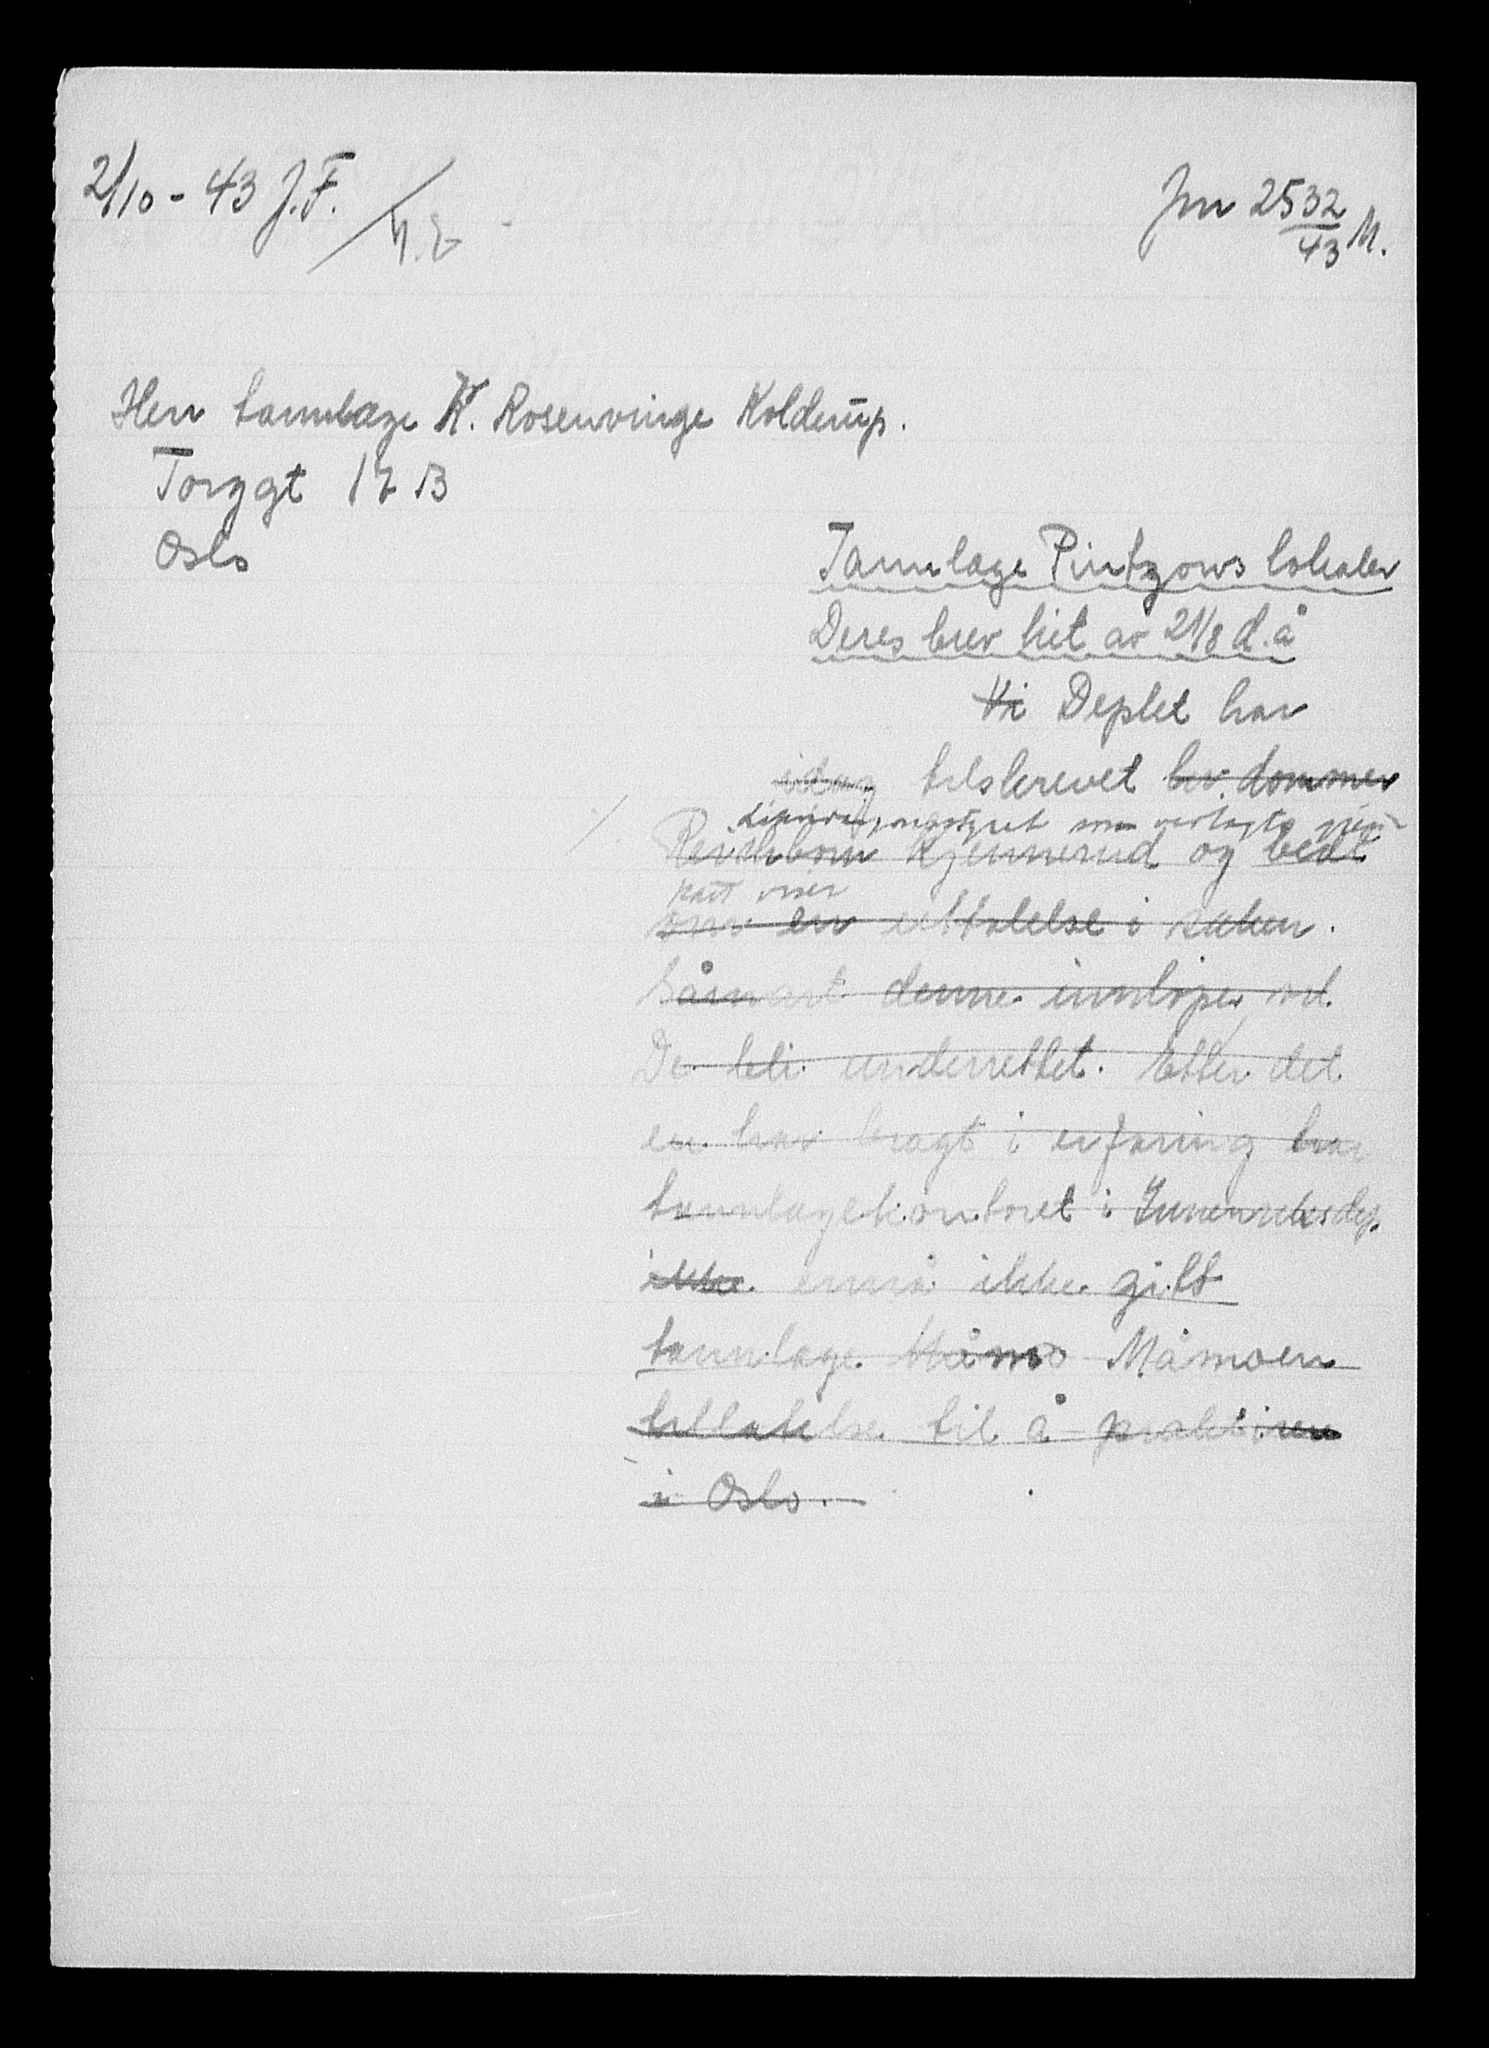 2/10 - 43 J.F.
Jnr 2532/43 M.
Herr tannlæge K. Rosenvinge Kolderup.
Torggt 17 B
Oslo
Tannlæge Pintzows lokaler
Deres brev hit av 21/8 d.å
Vi Deplet har
idag tilskrevet
likvidasjonsstyret som vedlagte gjen-
Kjennerud og bedt
part viser
om en uttalelse i saken.
Såsnart denne innløper vil
De bli underrettet. Etter det
en har bragt i erfaring har
tannlægekontoret i Innenriksdep.
ikke ennå ikke gitt
tannlæge Måmo Måmoen
tillatelse til å praktisere
i Oslo.